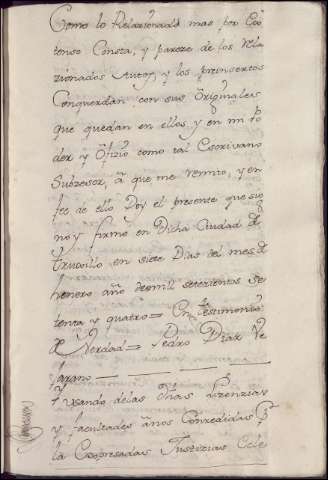 Como lo Relazionado mas por Ex
tenso Consta, y pareze de los Rela
zionados Autos, y los preinsertos
Conquerdan con sus Originales
que quedan en ellos y en mi Po
der y Ofizio como tal Escrivano
Subzesor, â que me remito, y en
fee de ello Doy el presente que sig
no y firmo en Dicha Ciudad de
Truxillo en siete Dias del mes de
henero año de mil setezientos Se
tenta y quatro = En testimonio
de Verdad = Pedro Diaz Ve
jarano
Y usando de las Dhãs Lizenzias
y facultades a nos Conzedidas Pr
la Expresadas Justizias Ecle